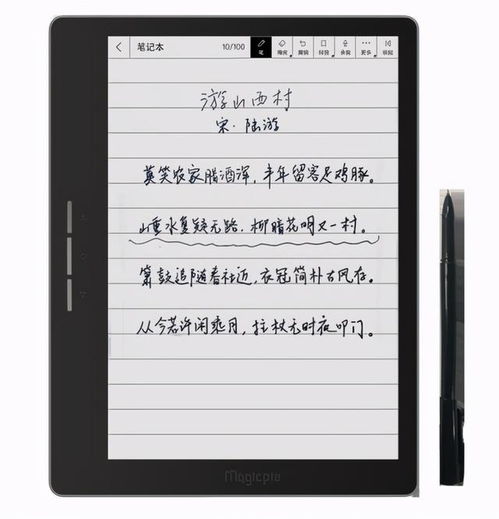 笔记本 10/100 笔 橡皮 撤销 更多
游山西村
宋·陆游
莫笑农家腊酒浑，丰年留客足鸡豚。
山重水复疑无路，柳暗花明又一村。
箫鼓追随春社近，衣冠简朴古风存。
从今若许闲乘月，拄杖无时夜叩门。
Magicpie